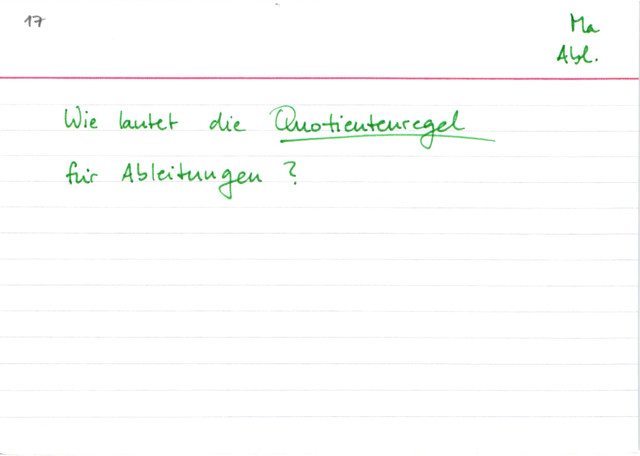 17
Ma
Abl.
Wie lautet die Quotientenregel
für Ableitungen ?